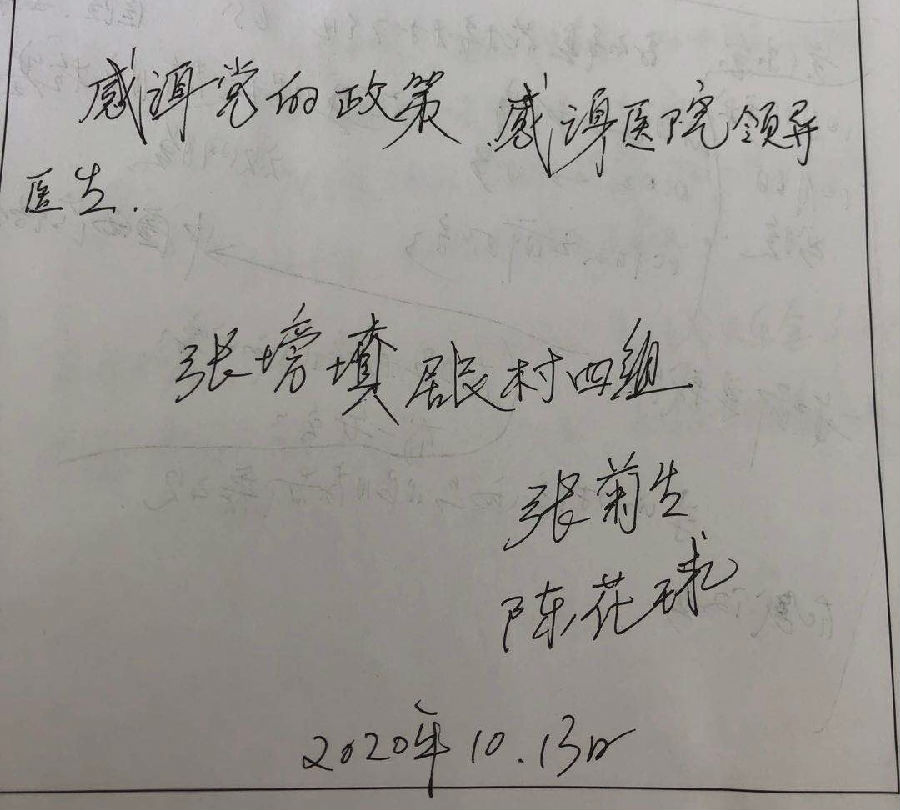 感谢党的政策 感谢医院领导
医生.
张塝填居民村四组
张菊生
陈花球
2020年10.13日